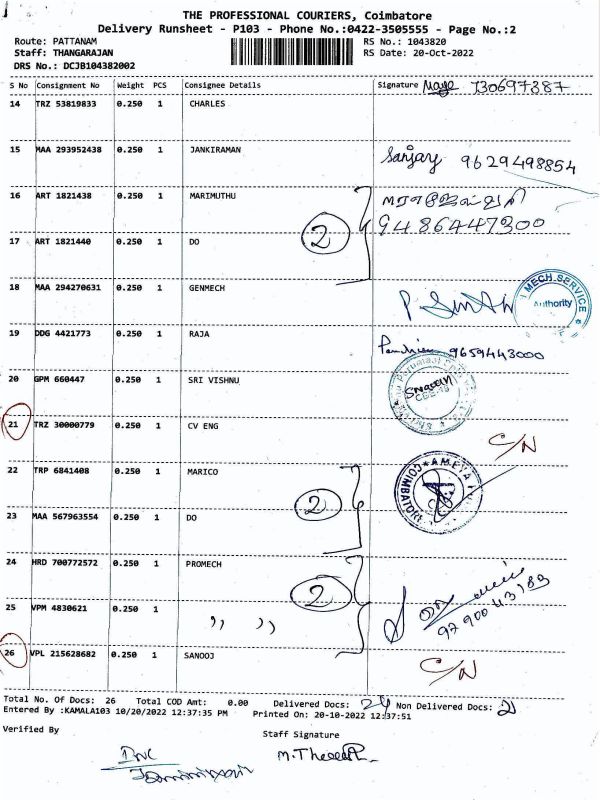 THE PROFESSIONAL COURIERS, Coimbatore
Delivery Runsheet - P103 - Phone No.:0422-3505555 - Page No.:2
Route: PATTANAM RS No.: 1043820
Staff: THANGARAJAN RS Date: 20-Oct-2022
DRS No.: DCJB104382002
S No Consignment No Weight PCS Consignee Details Signature
14 TRZ 53819833 0.250 1 CHARLES
15 MAA 293952438 0.250 1 JANKIRAMAN Sanjay 9629498854
16 ART 1821438 0.250 1 MARIMUTHU
2 9486447300
17 ART 1821440 0.250 1 DO
18 MAA 294270631 0.250 1 GENMECH MECH.SERVICE Authority
19 DDG 4421773 0.250 1 RAJA 9659443000
20 GPM 660447 0.250 1 SRI VISHNU
21 TRZ 30000779 0.250 1 CV ENG C/N
22 TRP 6841408 0.250 1 MARICO
2
23 MAA 567963554 0.250 1 DO
24 HRD 700772572 0.250 1 PROMECH
2
25 VPM 4830621 0.250 1 ,, ,,
26 VPL 215628682 0.250 1 SANOOJ C/N
Total No. Of Docs: 26 Total COD Amt: 0.00 Delivered Docs: 24 Non Delivered Docs: 2
Entered By :KAMALA103 10/20/2022 12:37:35 PM Printed On: 20-10-2022 12:37:51
Verified By Staff Signature